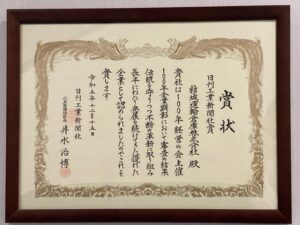 賞状
日刊工業新聞社賞
結城運輸倉庫株式会社 殿
貴社は100年経営の会主催
100年企業顕彰において審査の結果
伝統を守りつつ不断の革新に取り組み
長年にわたり発展を続けてきた優れた
企業として認められましたのでこれを
賞します
令和五年十二月十五日
日刊工業新聞社
井水治博